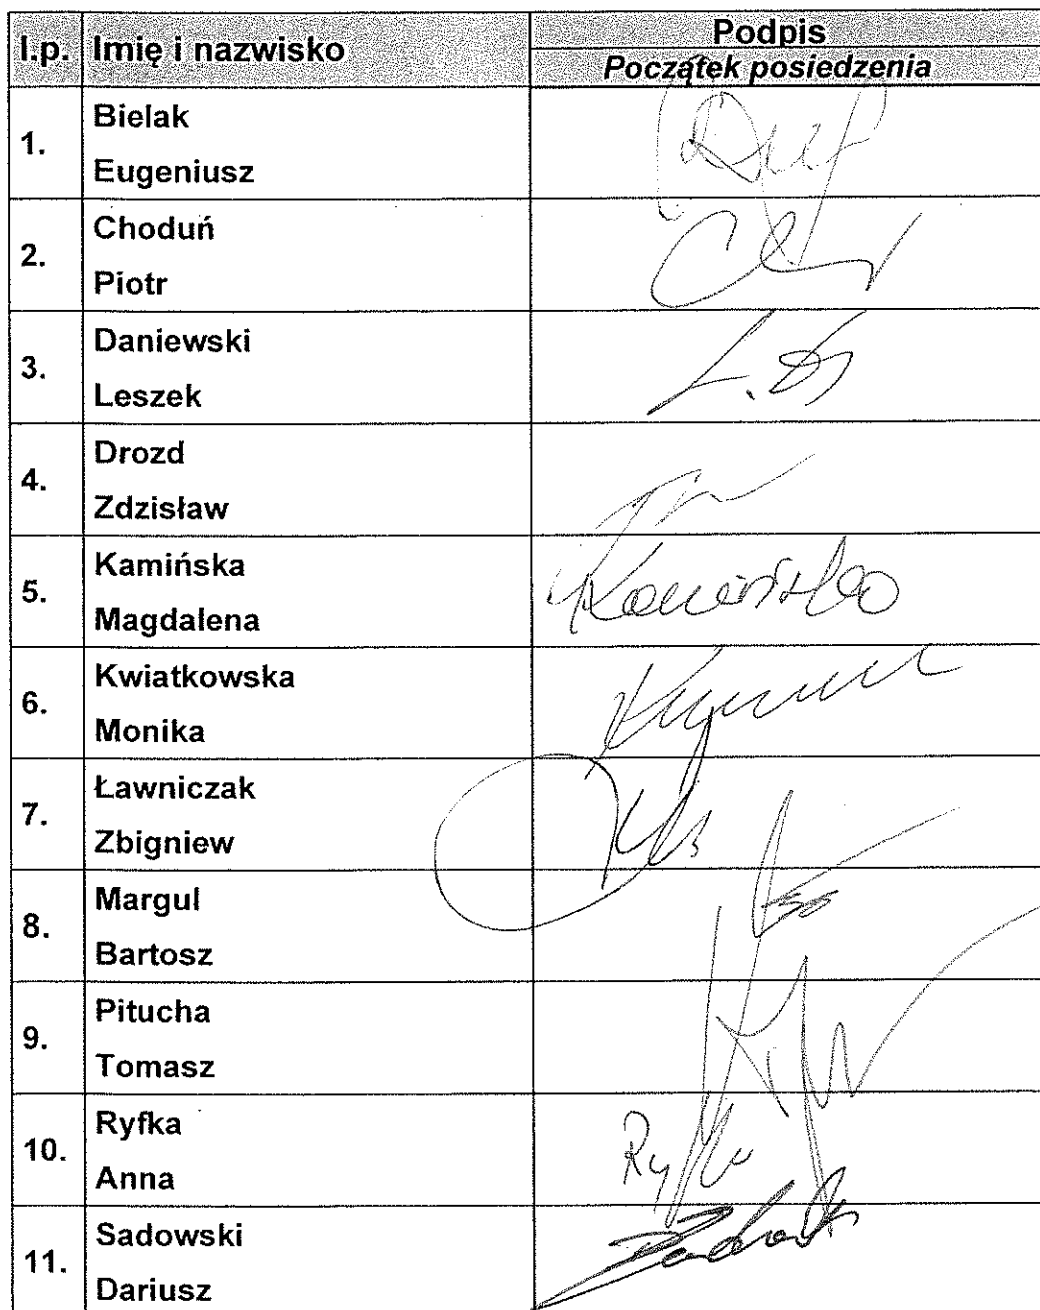 l.p. Imię i nazwisko Podpis
Początek posiedzenia
1. Bielak
Eugeniusz
2. Choduń
Piotr
3. Daniewski
Leszek
L. D
4. Drozd
Zdzisław
5. Kamińska
Magdalena
Kamińska
6. Kwiatkowska
Monika
7. Ławniczak
Zbigniew
8. Margul
Bartosz
9. Pitucha
Tomasz
10. Ryfka
Anna
Ryfka
11. Sadowski
Dariusz